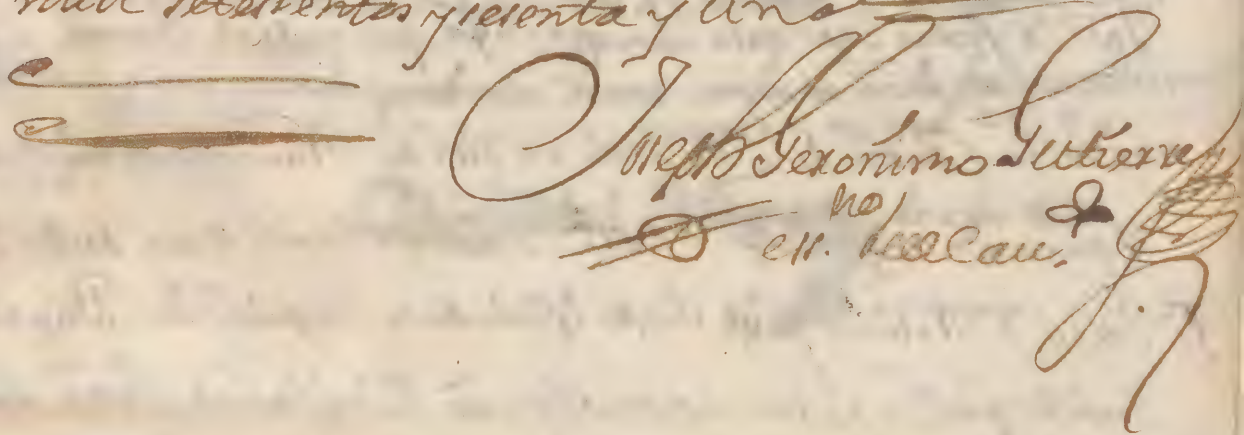 mil y setecientos y sesenta y Uno
Joseph Geronimo Gutierrez